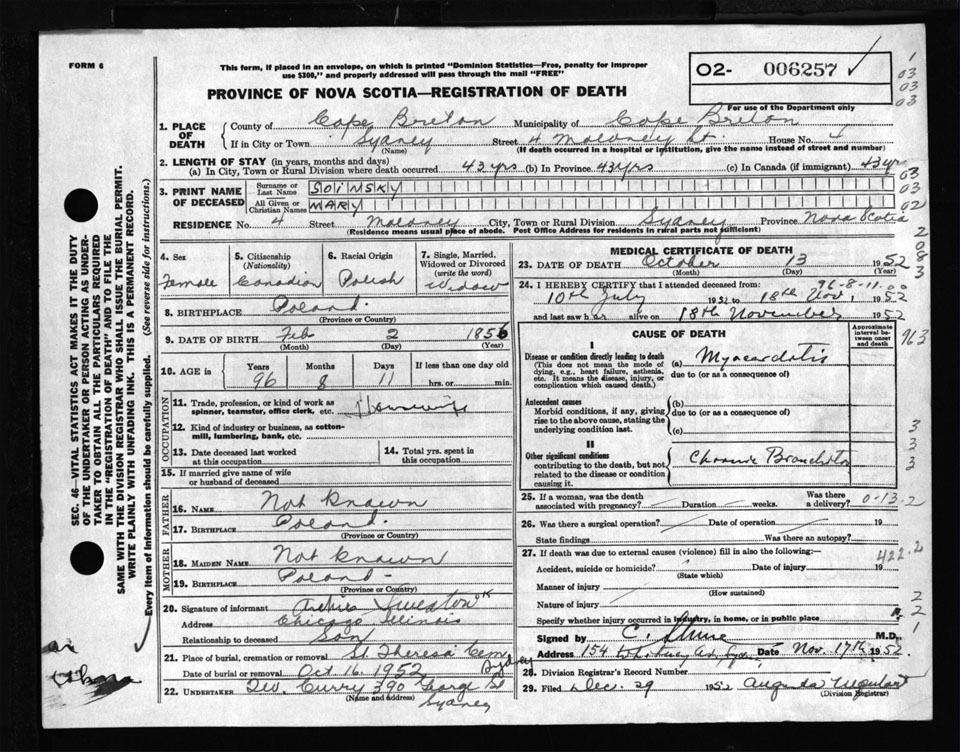 FORM 6
This form, if placed in an envelope, on which is printed "Dominion Statistics—Free, penalty for improper
use $300," and properly addressed will pass through the mail "FREE"
PROVINCE OF NOVA SCOTIA—REGISTRATION OF DEATH
O2- 006257 ✓
For use of the Department only
1
03
03
03
1. PLACE OF DEATH
County of Cape Breton Municipality of Cape Breton
If in City or Town Sydney Street 4 Moloney St. House No. 4
(Name) (If death occurred in a hospital or institution, give the name instead of street and number)
2. LENGTH OF STAY (in years, months and days)
(a) In City, Town or Rural Division where death occurred 43 yrs (b) In Province 43 yrs (c) In Canada (if immigrant) 43 yr
03
3. PRINT NAME OF DECEASED
Surname or Last Name SOLINSKY
03
All Given or Christian Names MARY
02
RESIDENCE No. 4 Street Moloney City, Town or Rural Division Sydney Province Nova Scotia
(Residence means usual place of abode. Post Office Address for residents in rural parts not sufficient)
2
0
8
3
4. Sex
Female
5. Citizenship (Nationality)
Canadian
6. Racial Origin
Polish
7. Single, Married, Widowed or Divorced (write the word)
Widow
8. BIRTHPLACE Poland.
(Province or Country)
9. DATE OF BIRTH Feb 2 1856
(Month) (Day) (Year)
10. AGE is Years 96 Months 8 Days 11 If less than one day old
hrs. or min.
OCCUPATION
11. Trade, profession, or kind of work as spinner, teamster, office clerk, etc. Housewife
12. Kind of industry or business, as cotton-mill, lumbering, bank, etc.
13. Date deceased last worked at this occupation
14. Total yrs. spent in this occupation
15. If married give name of wife or husband of deceased
FATHER
16. NAME Not Known
17. BIRTHPLACE Poland.
(Province or Country)
MOTHER
18. MAIDEN NAME Not Known
19. BIRTHPLACE Poland -
(Province or Country)
20. Signature of informant Archie
Address Chicago Illinois
Relationship to deceased Son
21. Place of burial, cremation or removal St. Theresa Cem Sydney
Date of burial or removal Oct 16 1952
22. UNDERTAKER Curry 390 George St
(Name and address)
Sydney
MEDICAL CERTIFICATE OF DEATH
23. DATE OF DEATH October 13 1952
(Month) (Day) (Year)
96-8-11
24. I HEREBY CERTIFY that I attended deceased from:
10th July 1952 to 18th Nov. 1952
and last saw her alive on 18th November 1952
CAUSE OF DEATH
Approximate interval between onset and death
963
I
Disease or condition directly leading to death (a) Myocarditis
(This does not mean the mode of dying, e.g., heart failure, asthenia, etc. It means the disease, injury, or complication which caused death.)
due to (or as a consequence of)
Antecedent causes (b)
Morbid conditions, if any, giving rise to the above cause, stating the underlying condition last.
due to (or as a consequence of)
(c)
II
Other significant conditions
contributing to the death, but not related to the disease or condition causing it.
Chronic Bronchitis
3
3
3
25. If a woman, was the death associated with pregnancy? Duration weeks. Was there a delivery? 0-13-2
26. Was there a surgical operation? Date of operation 19
State findings Was there an autopsy?
27. If death was due to external causes (violence) fill in also the following:—
422-2
Accident, suicide or homicide? Date of injury 19
(State which)
Manner of injury
(How sustained)
Nature of injury
Specify whether injury occurred in industry, in home, or in public place
2
2
1
Signed by C. M.D.
Address 154 Whitney Av. Sydney Date Nov. 17th 1952
28. Division Registrar's Record Number
29. Filed Dec. 29 1952
(Division Registrar)
SEC. 46—VITAL STATISTICS ACT MAKES IT THE DUTY
OF THE UNDERTAKER OR PERSON ACTING AS UNDER-
TAKER TO OBTAIN ALL THE PARTICULARS REQUIRED
IN THE "REGISTRATION OF DEATH" AND TO FILE THE
SAME WITH THE DIVISION REGISTRAR WHO SHALL ISSUE THE BURIAL PERMIT.
WRITE PLAINLY WITH UNFADING INK. THIS IS A PERMANENT RECORD.
Every item of information should be carefully supplied. (See reverse side for instructions.)